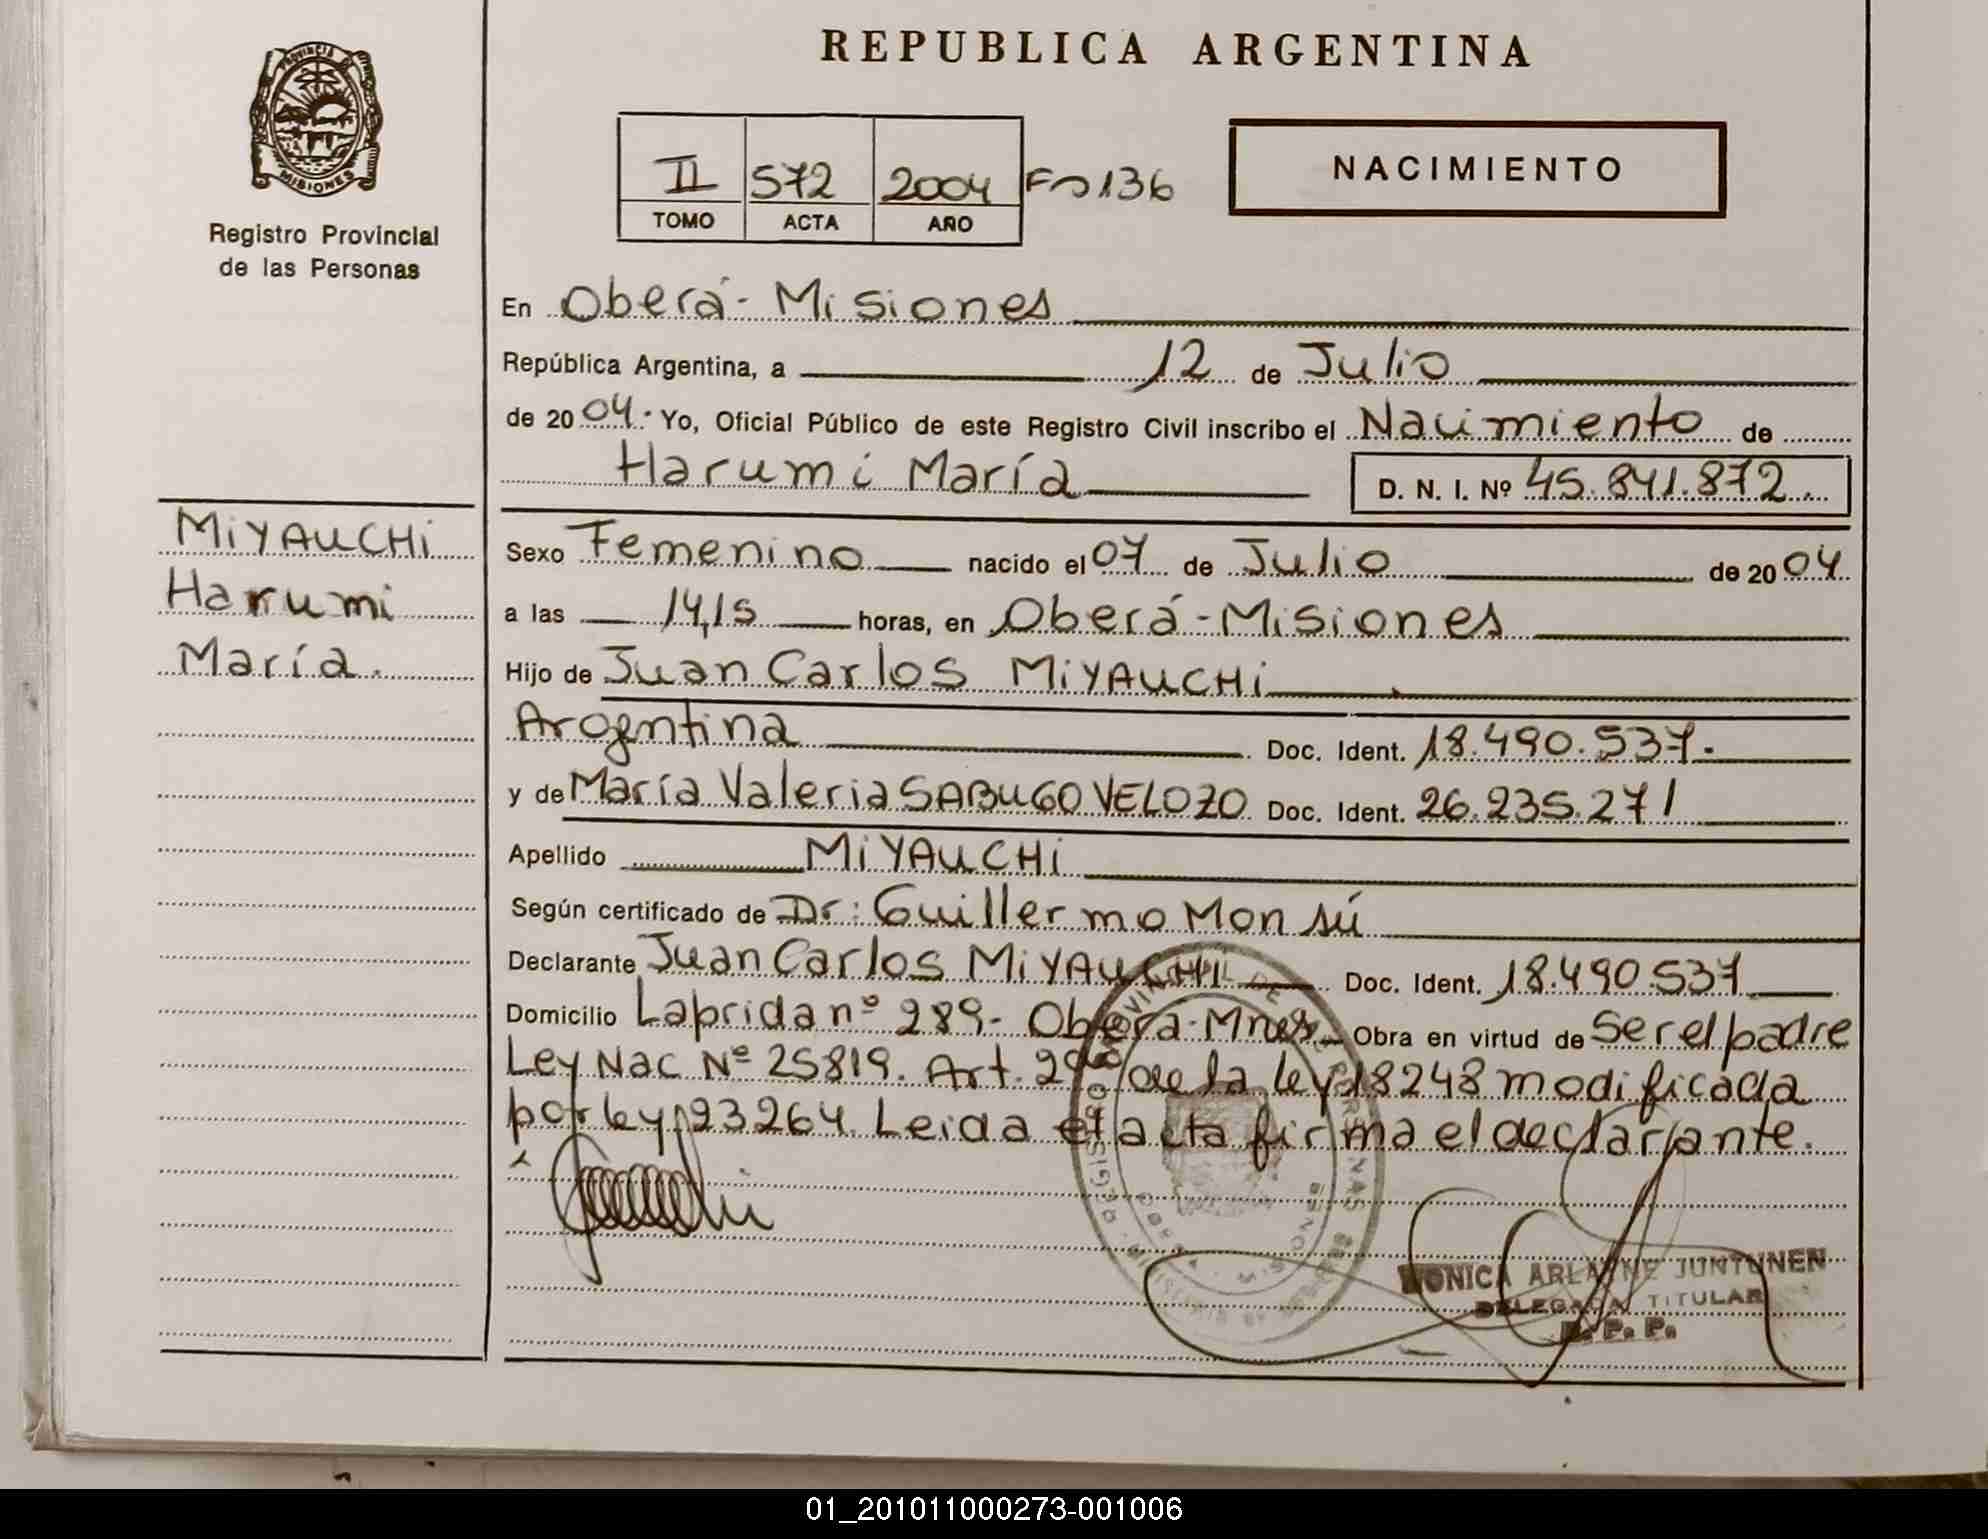 REPUBLICA ARGENTINA
PROVINCIA DE
MISIONES
Registro Provincial
de las Personas
II 572 2004 Fº 136
TOMO ACTA AÑO
NACIMIENTO
En Oberá - Misiones
República Argentina, a 12 de Julio
de 2004. Yo, Oficial Público de este Registro Civil inscribo el Nacimiento de
Harumi María D. N. I. Nº 45.841.872.
MiYAUCHi
Harumi
María.
Sexo Femenino nacido el 07 de Julio de 2004
a las 14,15 horas, en Oberá - Misiones
Hijo de Juan Carlos MiYAUCHi
Argentina Doc. Ident. 18.490.537.
y de María Valeria SABUGO VELOZO Doc. Ident. 26.235.271
Apellido MiYAUCHi
Según certificado de Dr: Guillermo Monsú
Declarante Juan Carlos MiYAUCHi Doc. Ident. 18.490.537
Domicilio Laprida nº 289 - Oberá - Mnes Obra en virtud de Ser el padre
Ley Nac Nº 25819. Art. 2do de la ley 18248 modificada
por ley 23264. Leida el acta firma el declarante.
MONICA ARLAINE JUNTUNEN
DELEGADA TITULAR
R. P. P.
01_201011000273-001006